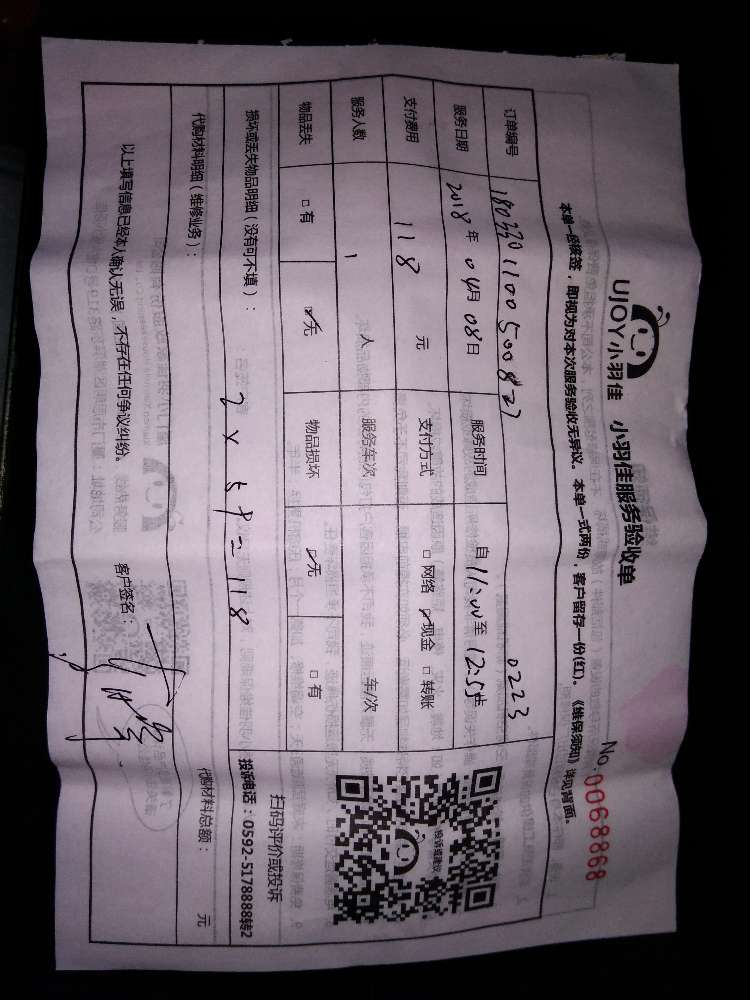 UJOY小羽佳 小羽佳服务验收单
No.0068868
本单一经核签，即视为对本次服务验收无异议。本单一式两份，客户留存一份(红)。《维保须知》详见背面。
订单编号 180330110050082? 0223
服务日期 2018年04月08日 服务时间 自11:00至12:55止
支付费用 118 元 支付方式 □网络 ☑现金 □转账
服务人数 1 人 服务车次 车/次
物品丢失 □有 ☑无 物品损坏 ☑无 □有
投诉或建议
扫码评价或投诉
投诉电话：0592-5178888转2
损坏或丢失物品明细（没有可不填）： 2×59=118
代购材料明细（维修业务）： 代购材料总额： 元
以上填写信息已经本人确认无误，不存在任何争议纠纷。 客户签名：